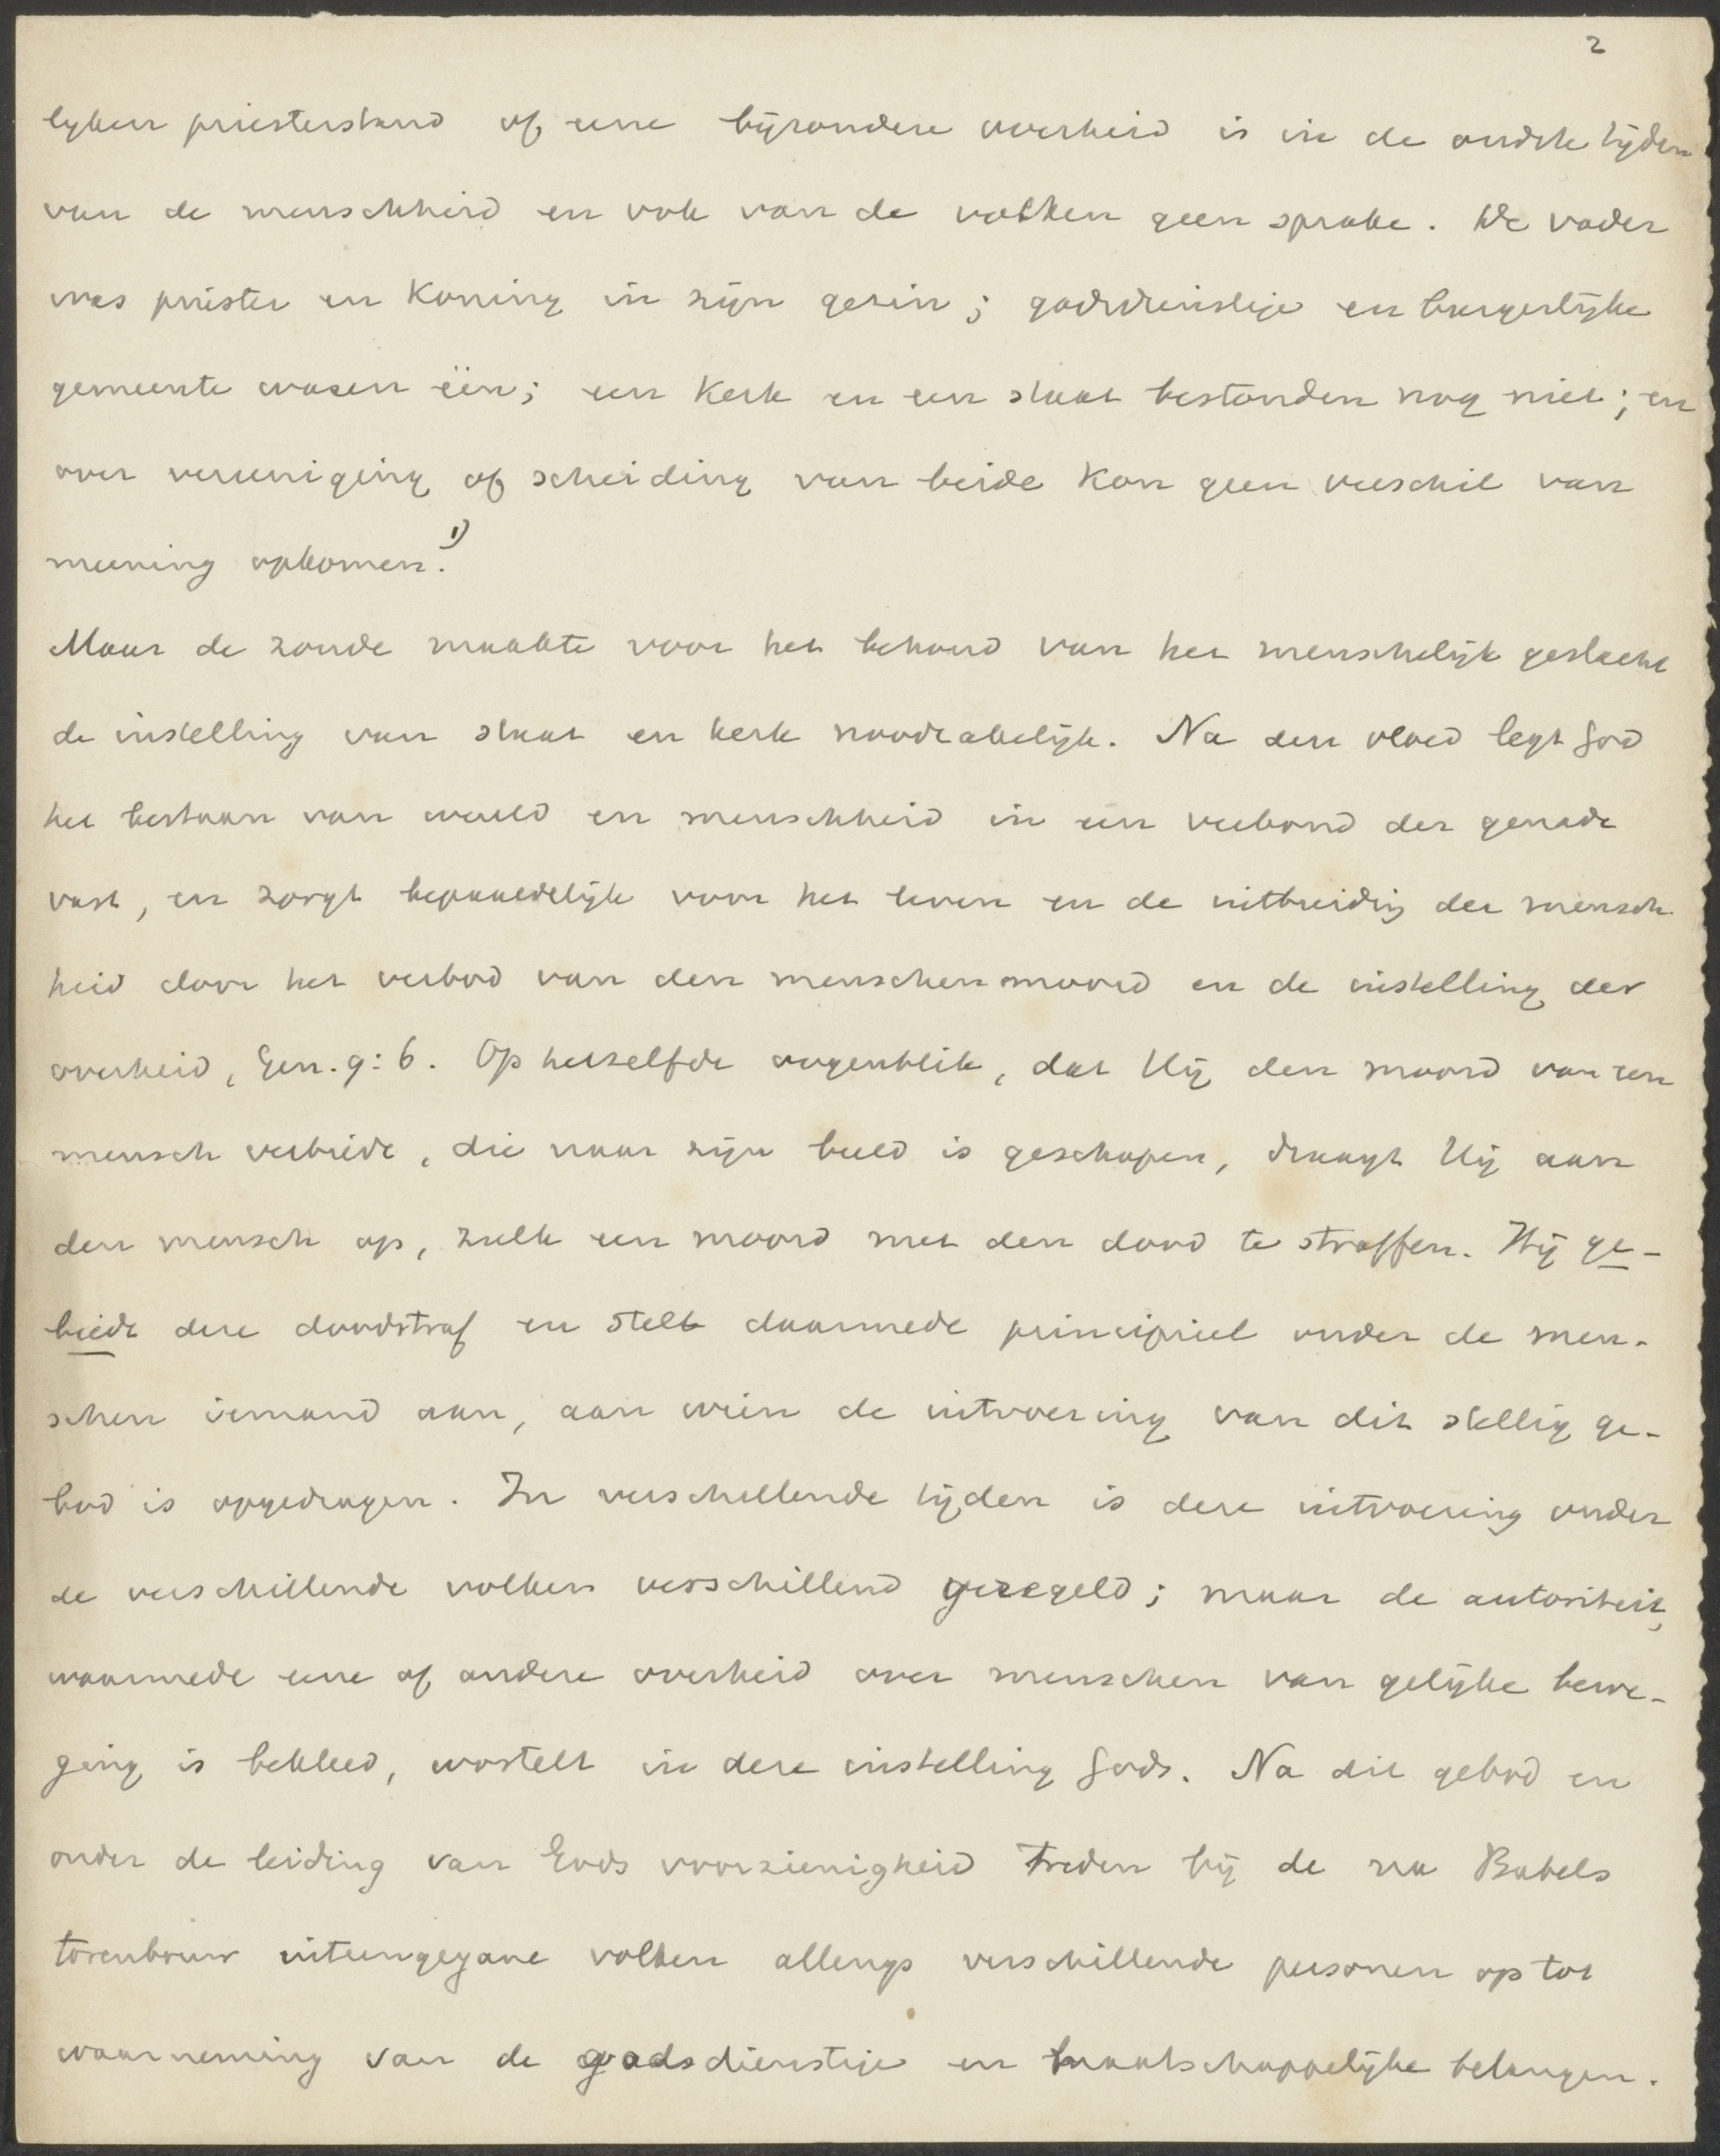 2
lijken priesterstand of eene bijzondere overheid is in de oudste tijden
van de menschheid en ook van de volken geen sprake. De vader
was priester en Koning in zijn gezin; godsdienstige en burgerlijke
gemeente waren één; een Kerk en een staat bestonden nog niet; en
over vereeniging of scheiding van beide kon geen verschil van
meening opkomen. 1)
Maar de zonde maakte voor het behoud van het menschelijk geslacht
de instelling van staat en kerk noodzakelijk. Na den vloed legt God
het bestaan van wereld en menschheid in een verbond der genade
vast, en zorgt bepaaldelijk voor het leven en de uitbreiding der mensch
heid door het verbod van den menschenmoord en de instelling der
overheid, Gen. 9:6. Op hetzelfde oogenblik, dat Hij den moord van een
mensch verbiedt, die naar zijn beeld is geschapen, draagt Hij aan
den mensch op, zulk een moord met den dood te straffen. Hij ge-
biedt deze doodstraf en stelt daarmede principieel onder de men-
schen iemand aan, aan wien de uitvoering van dit stellig ge-
bod is opgedragen. In verschillende tijden is deze uitvoering onder
de verschillende volken verschillend geregeld; maar de autoriteit,
waarmede eene of andere overheid over menschen van gelijke bewe-
ging is bekleed, wortelt in deze instelling Gods. Na dit gebod en
onder de leiding van Gods voorzienigheid treden bij de na Babels
torenbouw uiteengegane volken allengs verschillende personen op tot
waarneming van de godsdienstige en maatschappelijke belangen.